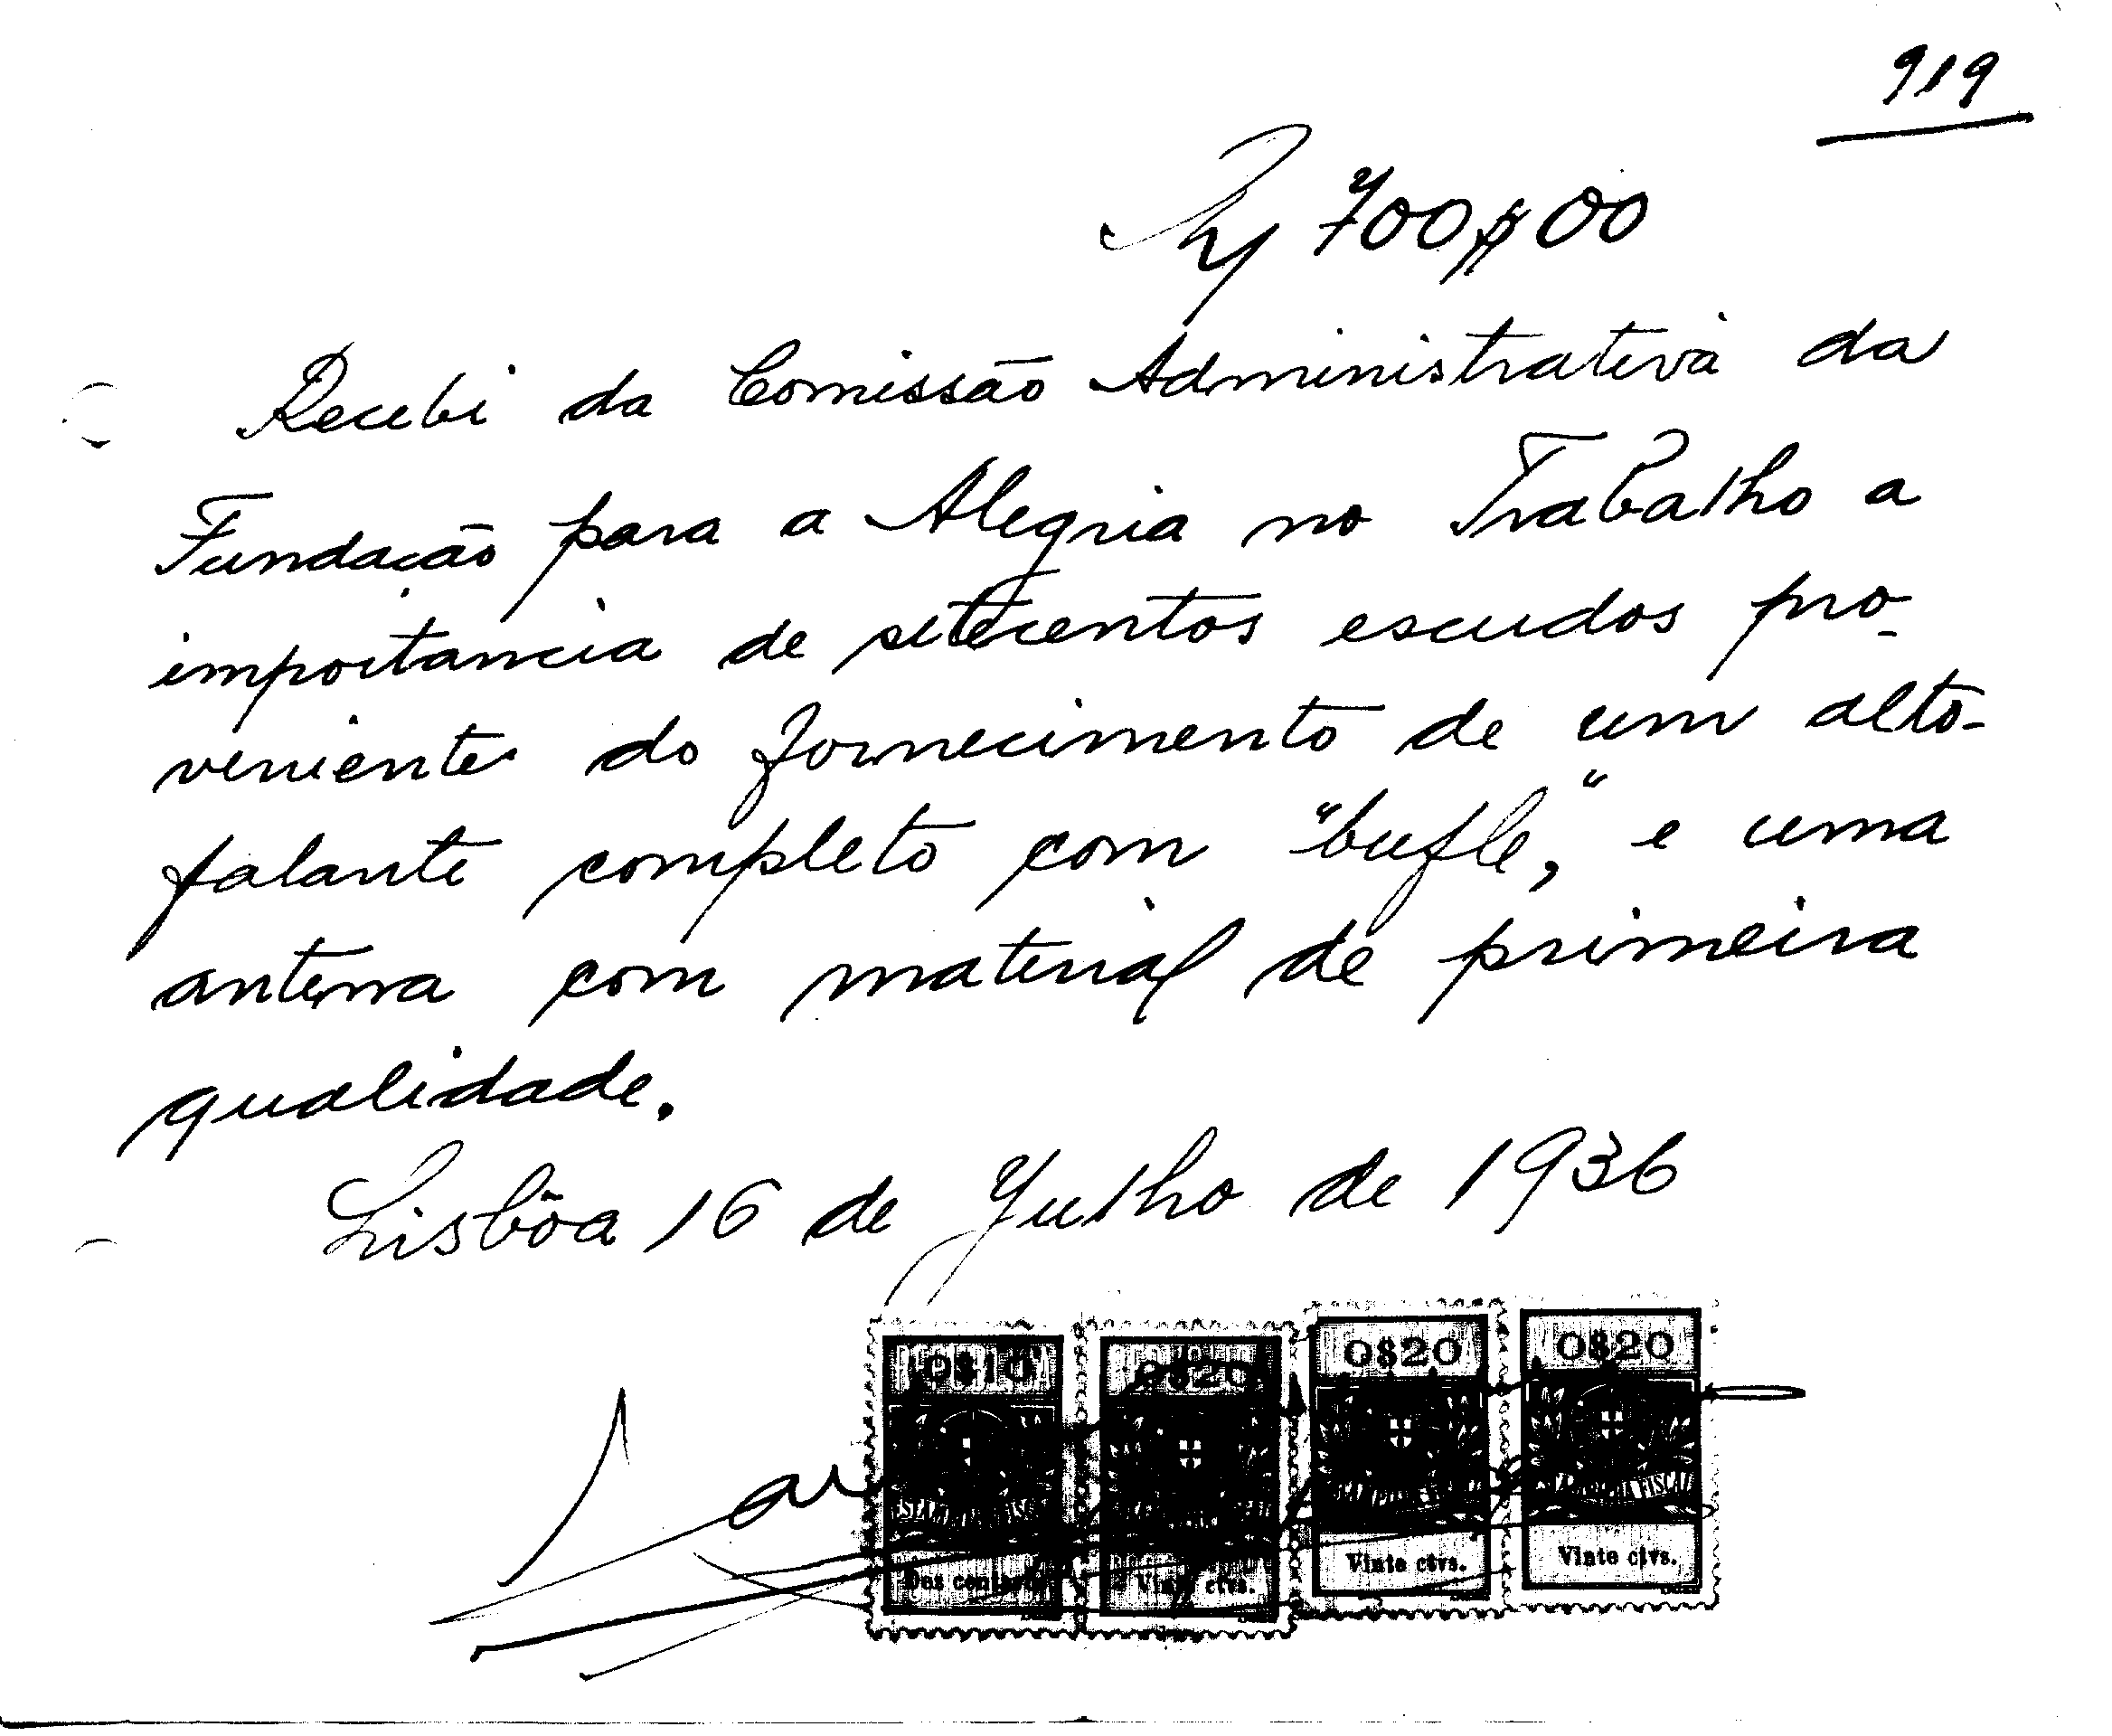 919
700$00
Recebi da Comissão Administrativa da
Fundação para a Alegria no Trabalho a
importancia de setecentos escudos pro-
veniente do fornecimento de um alto-
falante completo com "bufle," e uma
antena com material de primeira
qualidade.
Lisbôa 16 de Julho de 1936
0$10 0$20 0$20 0$20
ESTAMPILHA FISCAL ESTAMPILHA FISCAL
Dez centavos Vinte ctvs. Vinte ctvs. Vinte ctvs.